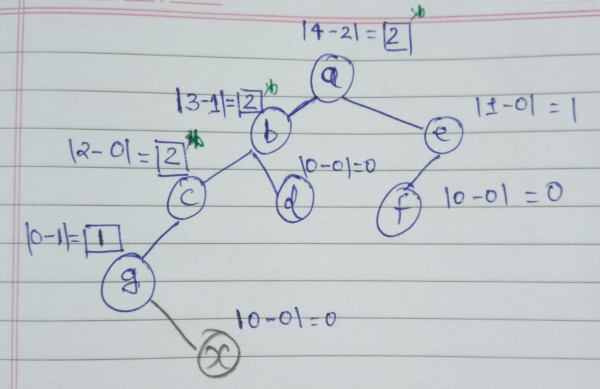 |4-2| = 2 *
a
|3-1| = 2 *
b
e
|1-0| = 1
|2-0| = 2 *
|0-0|=0
c
d
f
|0-0| = 0
|0-1|= 1
g
|0-0|=0
x